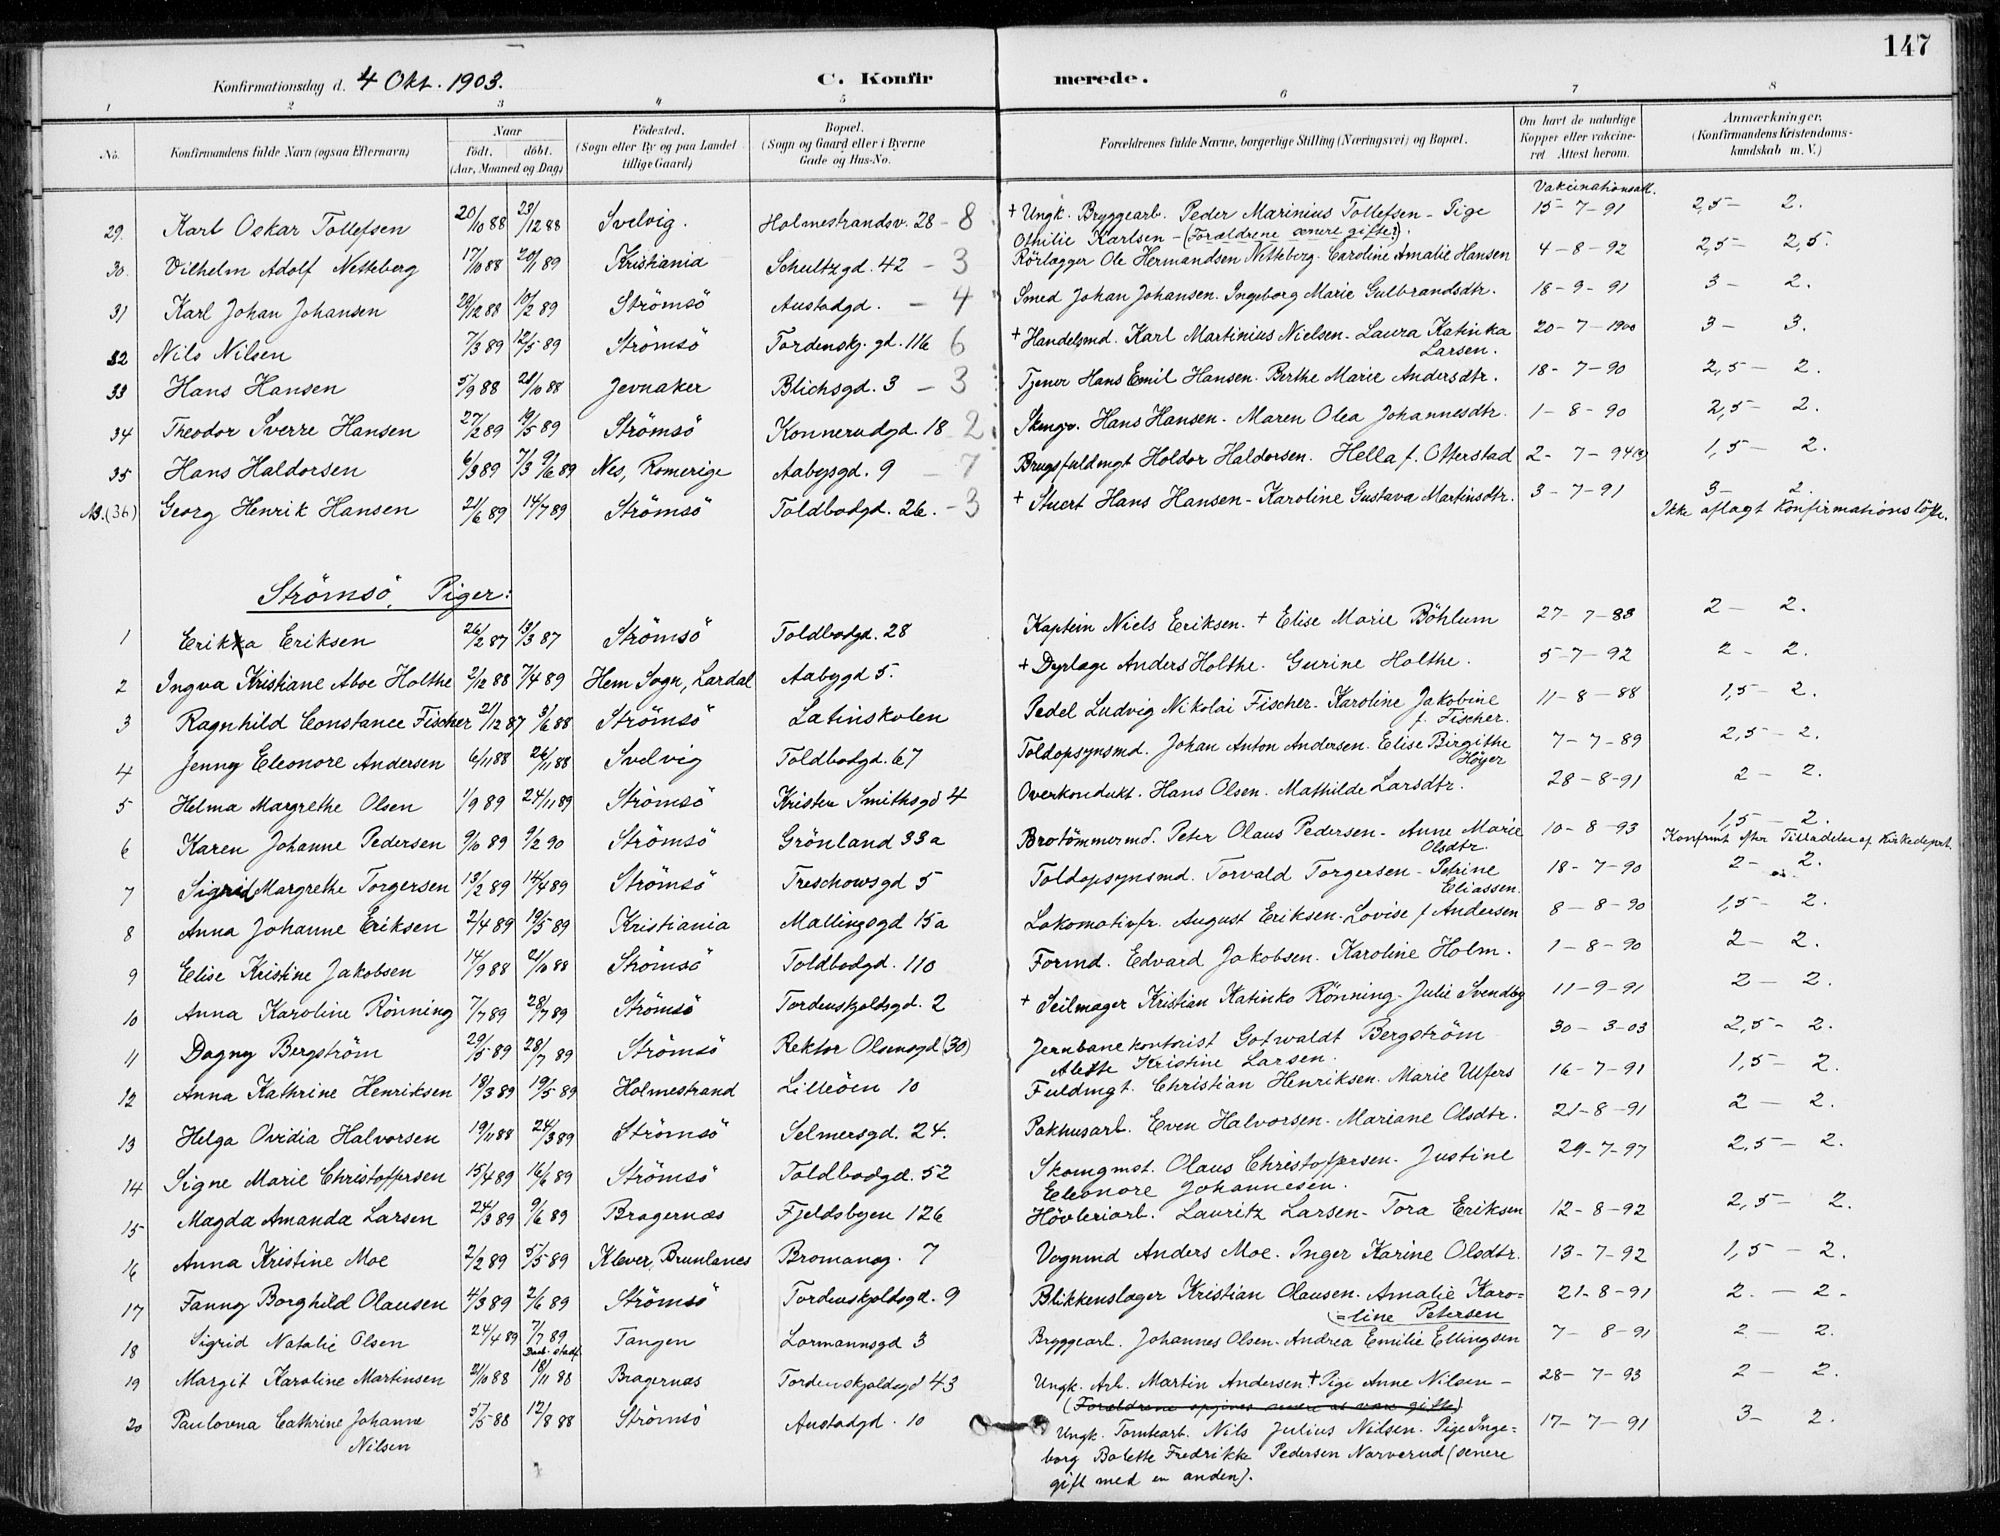 147
Konfirmationsdag d. 4 Okt. 1903. C. Konfirmerede.
1 2 3 4 5 6 7 8
No. Konfirmandens fulde Navn (ogsaa Efternavn) Naar Födt. döbt. (Aar, Maaned og Dag) Födested. (Sogn eller By og paa Landet tillige Gaard) Bopæl. (Sogn og Gaard eller i Byerne Gade og Hus-No. Forældrenes fulde Navne, borgerlige Stilling (Næringsvei) og Bopæl. Om havt de naturlige Kopper eller vakcineret Attest herom. Anmærkninger. (Konfirmandens Kristendomskundskab m. V.)
Vakcinationsatt.
29. Karl Oskar Tollefsen 20/10 88 23/12 88 Svelvig. Holmestrandsv. 28 - 8 + Ungk. Bryggearb. Peder Marinius Tollefsen - Pige 15-7-91 2,5 - 2.
Othilie Karlsen - (Forældrene senere gifte).
30. Vilhelm Adolf Netteberg 17/10 88 20/1 89 Kristiania Schultzgd. 42 - 3 Rörlægger Ole Hermandsen Netteberg. Caroline Amalie Hansen 4-8-92 2,5 - 2,5.
31 Karl Johan Johansen 29/12 88 10/2 89 Strömsö Austadgd. - 4 Smed Johan Johansen. Ingeborg Marie Gulbrandsdtr. 18-9-91 3 - 2.
32 Nils Nilsen 7/3 89 12/5 89 Strömsö Tordenskj. gd. 116 6 + Handelsmd. Karl Martinius Nielsen - Laura Katinka 20-7-1900 3 - 3.
Larsen.
33 Hans Hansen 5/9 88 21/10 88 Jevnaker Blichsgd. 3 - 3 Tjener Hans Emil Hansen. Berthe Marie Andersdtr. 18-7-90 2,5 - 2.
34 Theodor Sverre Hansen 27/2 89 19/5 89 Strömsö Konnerudgd. 18 - 2 Skomgr. Hans Hansen - Maren Olea Johannesdtr. 1-8-90 2,5 - 2.
35 Hans Haldorsen 6/3 89 7/3 9/6 89 Nes, Romerige Aabysgd. 9 - 7 Brugsfuldmgt Holdor Haldorsen. Hella f. Otterstad 2-7-94 1,5 - 2.
NB. (36) Georg Henrik Hansen 21/6 89 14/7 89 Strömsö Toldbodgd. 26. - 3 + Stuert Hans Hansen - Karoline Gustava Martinsdtr. 3-7-91 3 - 2.
Ikke aflagt Konfirmationslöfte.
Strömsö, Piger:
1 Erikka Eriksen 26/2 87 13/3 87 Strömsö Toldbodgd. 28 Kaptein Niels Eriksen. + Elise Marie Böhlum 27-7-88 2 - 2.
2 Ingva Kristiane Aboe Holthe 2/12 88 7/4 89 Hem Sogn, Lardal Aabygd 5. + Dyrlæge Anders Holthe. Gurine Holthe. 5-7-92 2 - 2.
3 Ragnhild Constance Fischer 21/12 87 3/6 88 Strömsö Latinskolen Pedel Ludvig Nikolai Fischer. Karoline Jakobine 11-8-88 1,5 - 2.
f. Fischer.
4 Jenny Eleonore Andersen 6/11 88 26/11 88 Svelvig Toldbodgd. 67 Toldopsynsmd. Johan Anton Andersen. Elise Birgithe 7-7-89 2,5 - 2.
Höyer
5 Helma Margrethe Olsen 1/9 89 24/11 89 Strömsö Krister Smithsgd 4 Overkondukt. Hans Olsen. Mathilde Larsdtr. 28-8-91 2 - 2.
6 Karen Johanne Pedersen 9/10 89 9/2 90 Strömsö Grönland 33a Brotömmermd. Peter Olaus Pedersen - Anne Marie 10-8-93 1,5 - 2.
Olsdtr. Konfirmt efter Tilladelse af Kirkedeprt.
7 Sigrid Margrethe Torgersen 13/2 89 14/4 89 Strömsö Treschowsgd 5 Toldopsynsmd. Torvald Torgersen - Petrine 18-7-90 2 - 2.
Eliassen.
8 Anna Johanne Eriksen 2/4 89 19/5 89 Kristiania Mallingsgd 15a Lokomotivfr. August Eriksen. Lovise f Andersen 8-8-90 1,5 - 2.
9 Elise Kristine Jakobsen 14/9 88 21/10 88 Strömsö Toldbodgd. 110 Formd. Edvard Jakobsen. Karoline Holm. 1-8-90 2 - 2.
10 Anna Karoline Rönning 7/7 89 28/7 89 Strömsö Tordenskjoldsgd. 2 + Seilmager Kristian Katinko Rönning. Julie Svendby 11-9-91 2 - 2.
11 Dagny Bergström 29/5 89 28/7 89 Strömsö Rektor Olsensgd (30) Jernbanekontorist Gotwaldt Bergström 30-3-03 2,5 - 2.
Alette Kristine Larsen.
12 Anna Kathrine Henriksen 18/3 89 19/5 89 Holmestrand Lilleöen 10 Fuldmgt. Christian Henriksen. Marie Ulfers 16-7-91 1,5 - 2.
13 Helga Ovidia Halvorsen 19/11 88 24/3 89 Strömsö Selmersgd. 24. Pakhusarb. Even Halvorsen. Mariane Olsdtr. 21-8-91 2 - 2.
14 Signe Marie Christoffersen 15/4 89 16/6 89 Strömsö Toldbodgd. 52 Skomgmst. Olaus Christoffersen. Justine 29-7-97 2,5 - 2.
Eleonore Johannesen.
15 Magda Amanda Larsen 24/3 89 9/6 89 Bragernæs Fjeldsbyen 126 Hövleriarb. Lauritz Larsen - Tora Eriksen 12-8-92 2,5 - 2.
16 Anna Kristine Moe 2/2 89 5/5 89 Klever, Brunlanes Bromansg. 7 Vognmd Anders Moe. Inger Karine Olsdtr. 13-7-92 1,5 - 2.
17 Fanny Borghild Olausen 4/3 89 2/6 89 Strömsö Tordenskjoldsgd. 9 Blikkenslager Kristian Olausen. Amalie Karo= 21-8-91 2. - 2-
=line Petersen
18 Sigrid Natalie Olsen 24/4 89 7/7 89 Tangen Lormannsgd 3 Bryggearb. Johannes Olsen - Andrea Emilie Ellingsen 7-8-91 2 - 2.
Daab stadf.
19 Margit Karoline Martinsen 2/10 88 18/11 88 Bragernæs Tordenskjoldsgd 43 Ungk. Arb. Martin Andersen. + Pige Anne Nilsen - 28-7-93 2 - 2.
(Forældrene opgives senere at være gifte)
20 Paulovna Cathrine Johanne 5/5 88 12/8 88 Strömsö Austadgd. 10 Ungk. Tomtearb. Nils Julius Nilsen. Pige Inge= 17-7-91 3 - 2.
Nilsen borg Bolette Fredrikke Pedersen Narverud (senere
gift med en anden).